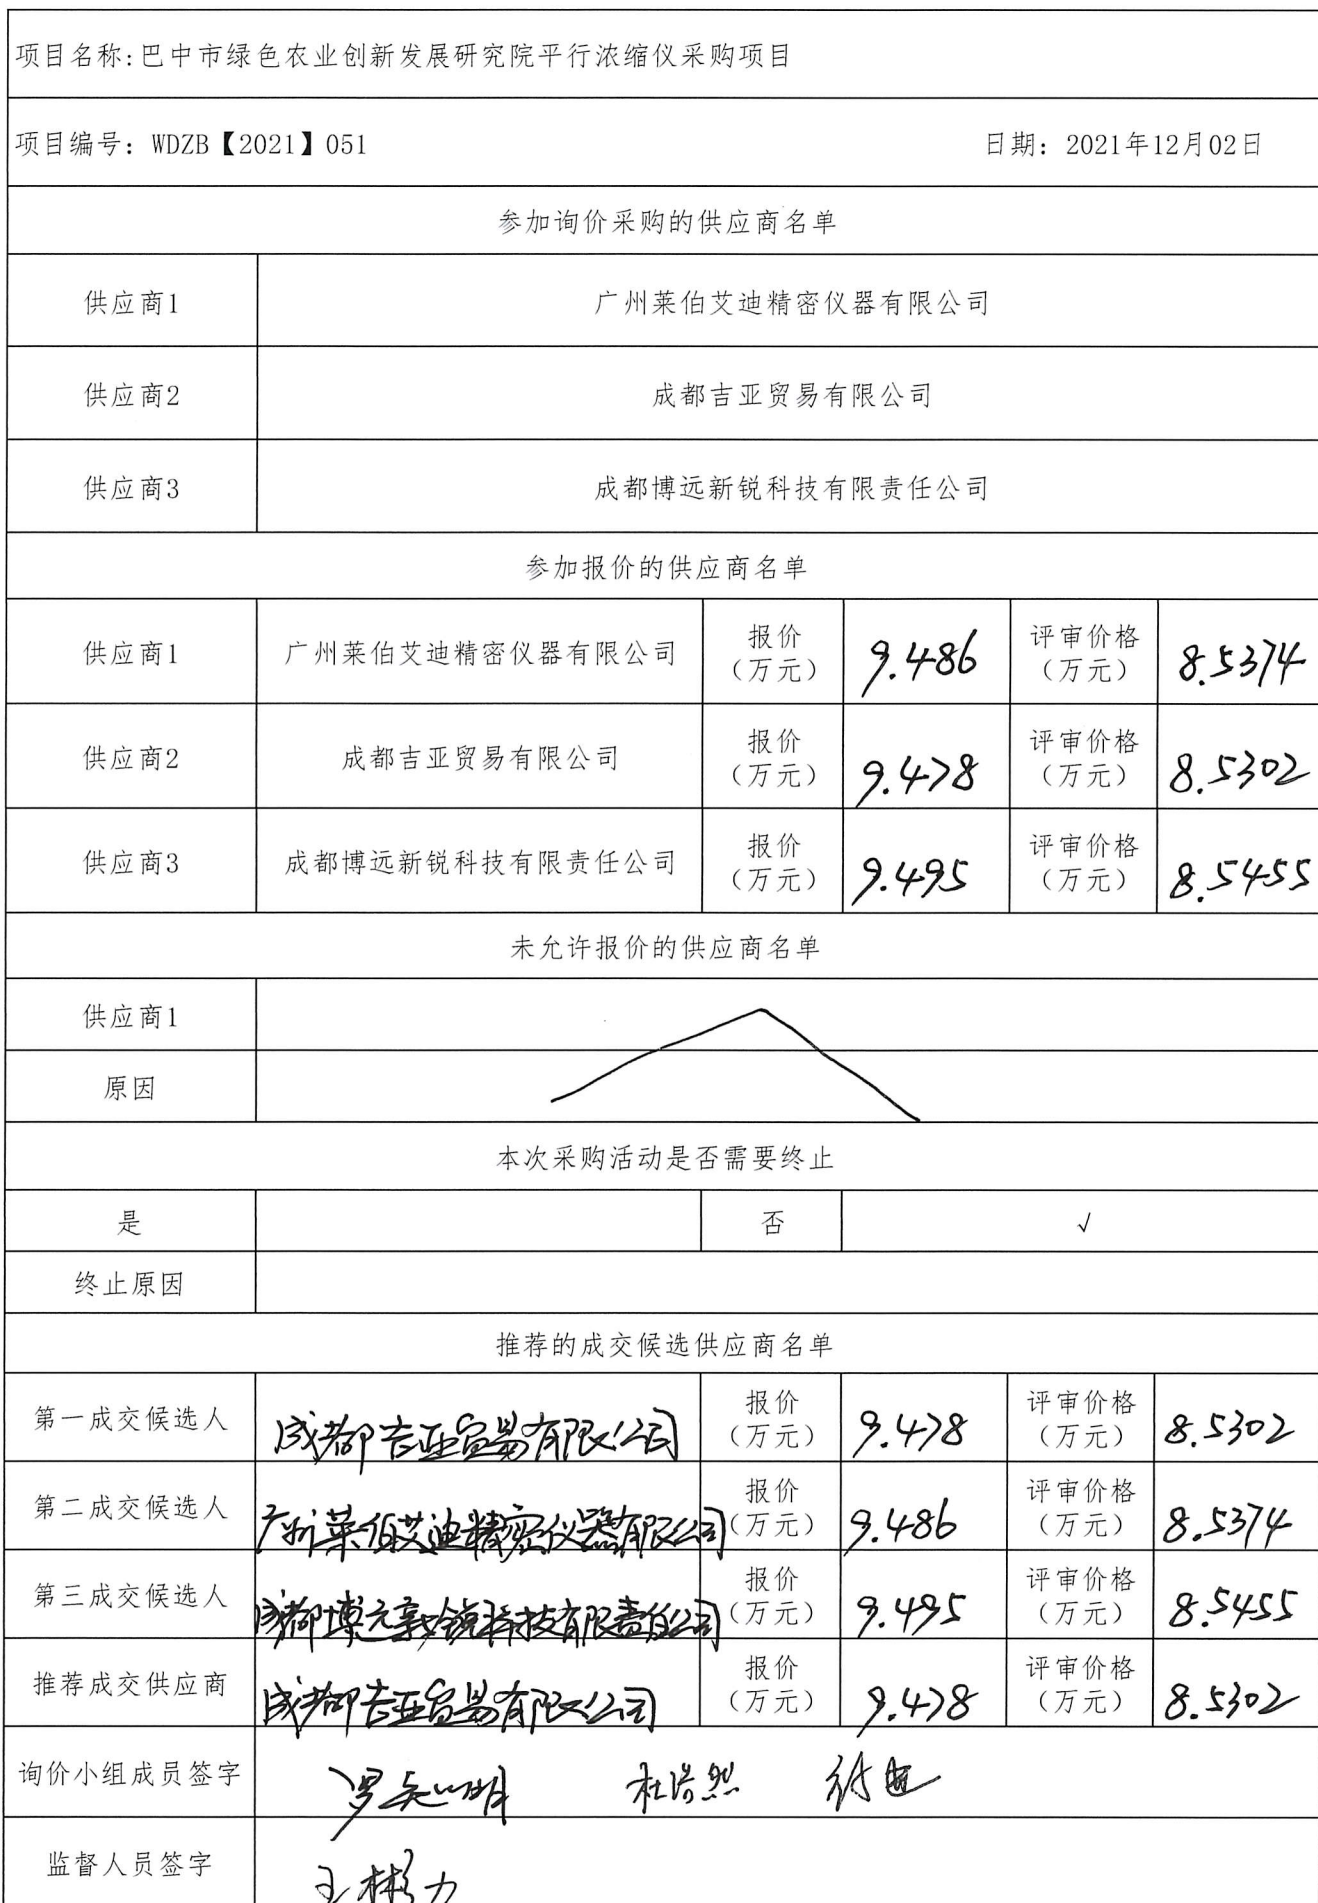 项目名称:巴中市绿色农业创新发展研究院平行浓缩仪采购项目
项目编号：WDZB【2021】051 日期：2021年12月02日
参加询价采购的供应商名单
供应商1 广州莱伯艾迪精密仪器有限公司
供应商2 成都吉亚贸易有限公司
供应商3 成都博远新锐科技有限责任公司
参加报价的供应商名单
供应商1 广州莱伯艾迪精密仪器有限公司 报价（万元） 9.486 评审价格（万元） 8.5374
供应商2 成都吉亚贸易有限公司 报价（万元） 9.478 评审价格（万元） 8.5302
供应商3 成都博远新锐科技有限责任公司 报价（万元） 9.495 评审价格（万元） 8.5455
未允许报价的供应商名单
供应商1
原因
本次采购活动是否需要终止
是 否 √
终止原因
推荐的成交候选供应商名单
第一成交候选人 成都吉亚贸易有限公司 报价（万元） 9.478 评审价格（万元） 8.5302
第二成交候选人 广州莱伯艾迪精密仪器有限公司 报价（万元） 9.486 评审价格（万元） 8.5374
第三成交候选人 成都博元新锐科技有限责任公司 报价（万元） 9.495 评审价格（万元） 8.5455
推荐成交供应商 成都吉亚贸易有限公司 报价（万元） 9.478 评审价格（万元） 8.5302
询价小组成员签字 杜浩然
监督人员签字 王彬力